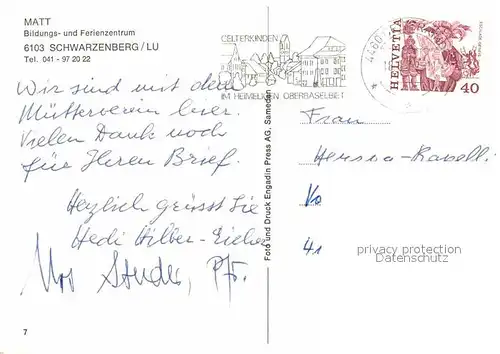 MATT
Bildungs- und Ferienzentrum
6103 SCHWARZENBERG/LU
Tel. 041 - 97 20 22
Wir sind mit dem
Mütterverein hier.
Vielen Dank noch
für Ihren Brief.
Herzlich grüsst Sie
Hedi Hilber-
Urs Studer, Pfr.
7
Foto und Druck Engadin Press AG, Samedan
GELTERKINDEN
IM HEIMELIGEN OBERBASELBIET
4460
HELVETIA
40
Frau
41
privacy protection
Datenschutz